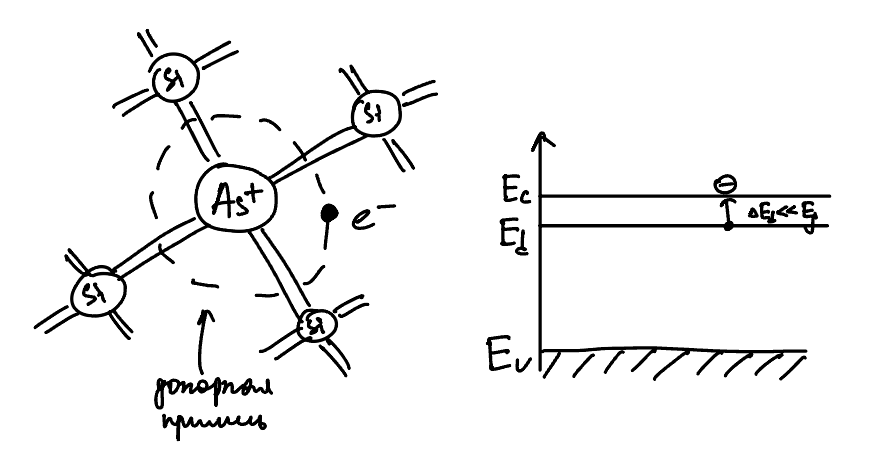 Si
Si
As⁺
e⁻
Si
Si
донорная
примесь
E_c
⊖
ΔE_d<<E_g
E_d
E_v